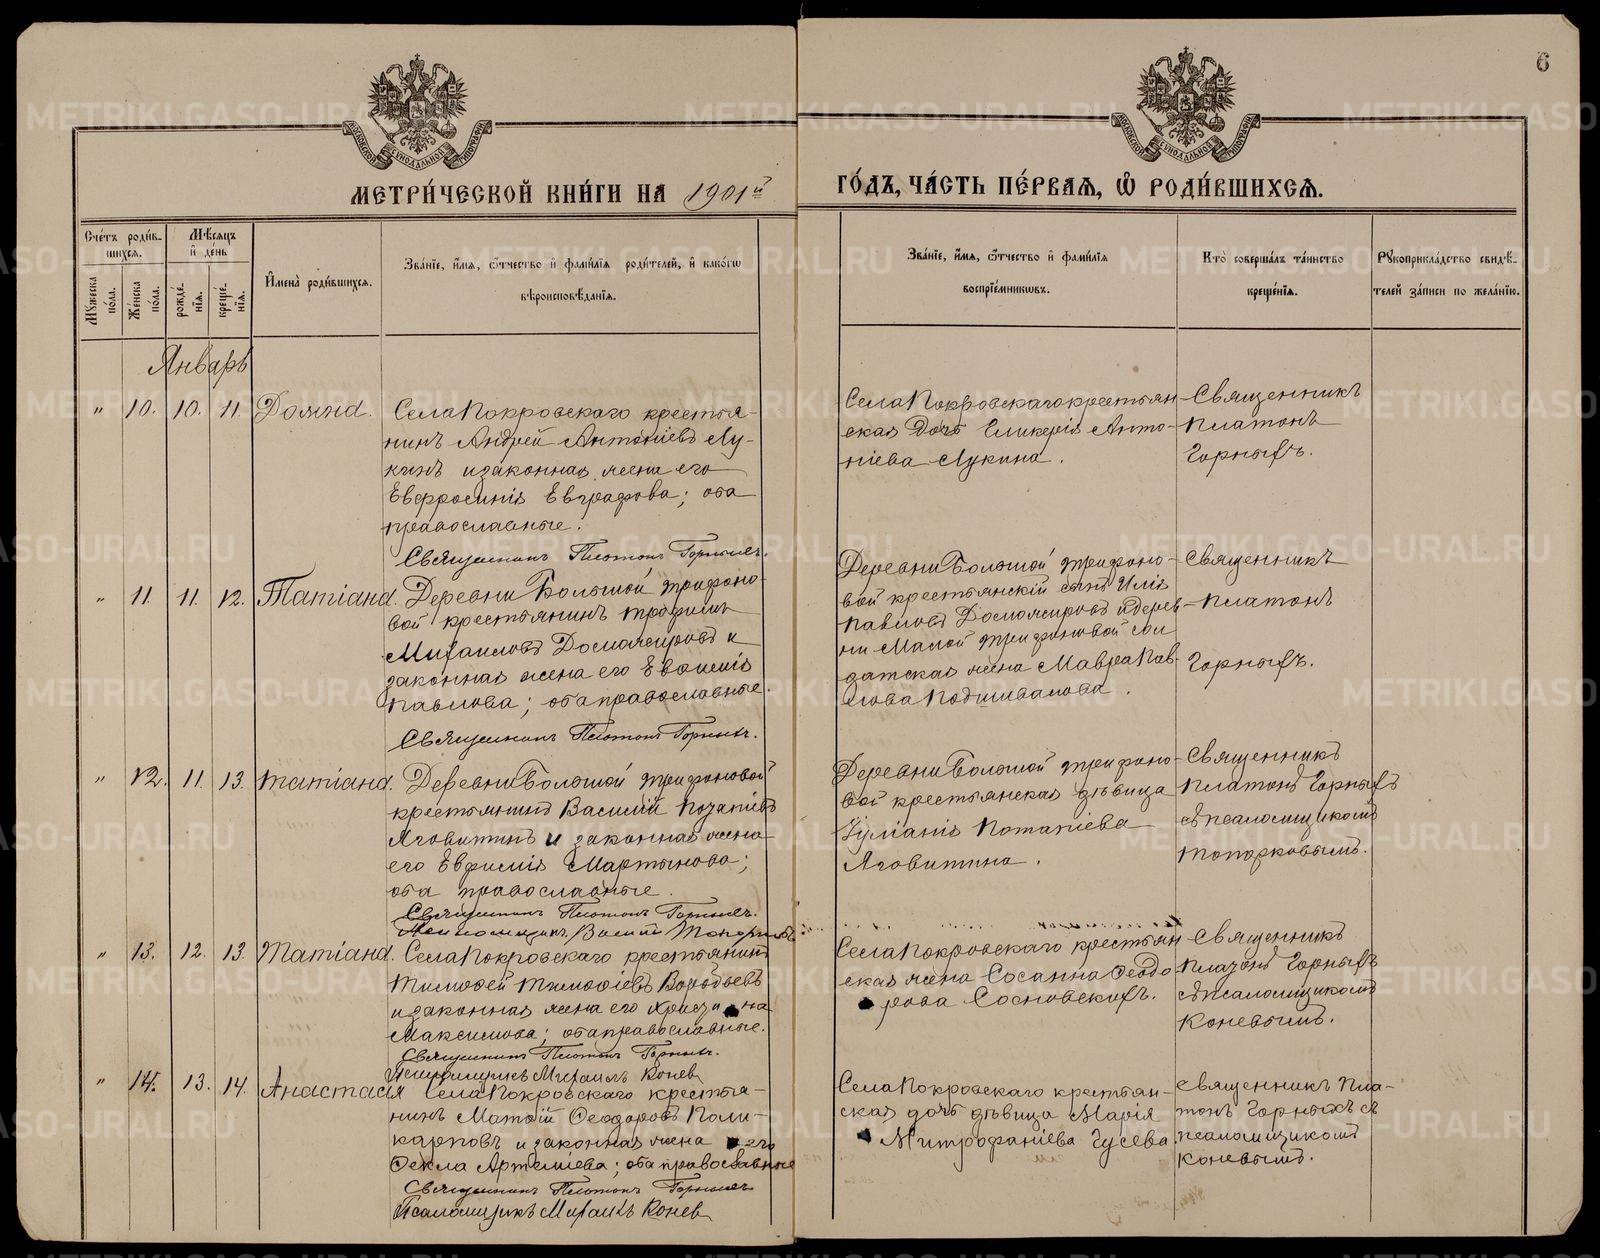 6
МЕТРИ́ЧЕСКОЙ КНИ́ГИ НА 1901й ГО́ДЪ, ЧА́СТЬ ПЕ́РВАѦ, Ѽ РОДИ́ВШИХСѦ.
Сче́тъ роди́в-
шихсѧ.
Мѣ́сяцъ
и҆ де́нь
Мꙋ́жеска по́ла.
Же́нска по́ла.
рожде́-
нїѧ.
креще́-
нїѧ.
И҆мена̀ роди́вшихсѧ.
Зва́нїе, и҆́мѧ, ѻ҆́тчество и҆ фами́лїѧ роди́телей, и҆ како́гѡ
вѣроисповѣ́данїѧ.
Зва́нїе, и҆́мѧ, ѻ҆́тчество и҆ фами́лїѧ
воспрїе́мникѡвъ.
Кто̀ соверша́лъ та́инство
креще́нїѧ.
Рꙋкоприкла́дство свидѣ́-
телей за́писи по жела́нїю.
Январь
" 10. 10. 11. Домна.
Села Покровскаго крестья-
нинъ Андрей Антонiевъ Лу-
кинъ и законная жена его
Евфросинiя Евграфова; оба
православные.
Священникъ Платонъ Горныхъ.
Села Покровскаго крестьян-
ская дочь Гликерiя Анто-
нiева Лукина.
Священникъ
Платонъ
Горныхъ.
" 11. 11. 12. Татiана.
Деревни Большой Трифоно-
вой крестьянинъ Трофимъ
Михаиловъ Доможировъ и
законная жена его Евфимiя
Павлова; оба православные.
Священникъ Платонъ Горныхъ.
Деревни Большой Трифоно-
вой крестьянскiй сынъ Илiя
Павловъ Доможировъ и дерев-
ни Малой Трифоновой сол-
датская жена Мавра Пав-
лова Подшивалова.
Священникъ
Платонъ
Горныхъ.
" 12. 11. 13. Татiана.
Деревни Большой Трифоновой
крестьянинъ Василiй Потапiевъ
Яговитинъ и законная жена
его Евфимiя Мартынова;
оба православные.
Священникъ Платонъ Горныхъ.
Псаломщикъ Василiй Топорковъ
Деревни Большой Трифоно-
вой крестьянская дѣвица
Iулiанiя Потапiева
Яговитина.
Священникъ
Платонъ Горныхъ
съ псаломщикомъ
Топорковымъ.
" 13. 12. 13. Татiана.
Села Покровскаго крестьянинъ
Тимофей Тимофiевъ Воробьевъ
и законная жена его Христина
Максимова; оба православные.
Священникъ Платонъ Горныхъ.
Псаломщикъ Михаилъ Коневъ
Села Покровскаго крестьян-
ская жена Сосанна Ѳеодо-
рова Сосновскихъ.
Священникъ
Платонъ Горныхъ
съ псаломщикомъ
Коневымъ.
" 14. 13. 14. Анастасiя
Села Покровскаго крестья-
нинъ Матѳiй Ѳеодоровъ Поли-
карповъ и законная жена его
Ѳекла Артемiева; оба православные
Священникъ Платонъ Горныхъ
Псаломщикъ Михаилъ Коневъ
Села Покровскаго крестьян-
ская дочь дѣвица Марiя
Митрофанiева Гусева.
Священникъ Пла-
тонъ Горныхъ съ
псаломщикомъ
Коневымъ.
METRIKI.GASO-URAL.RU